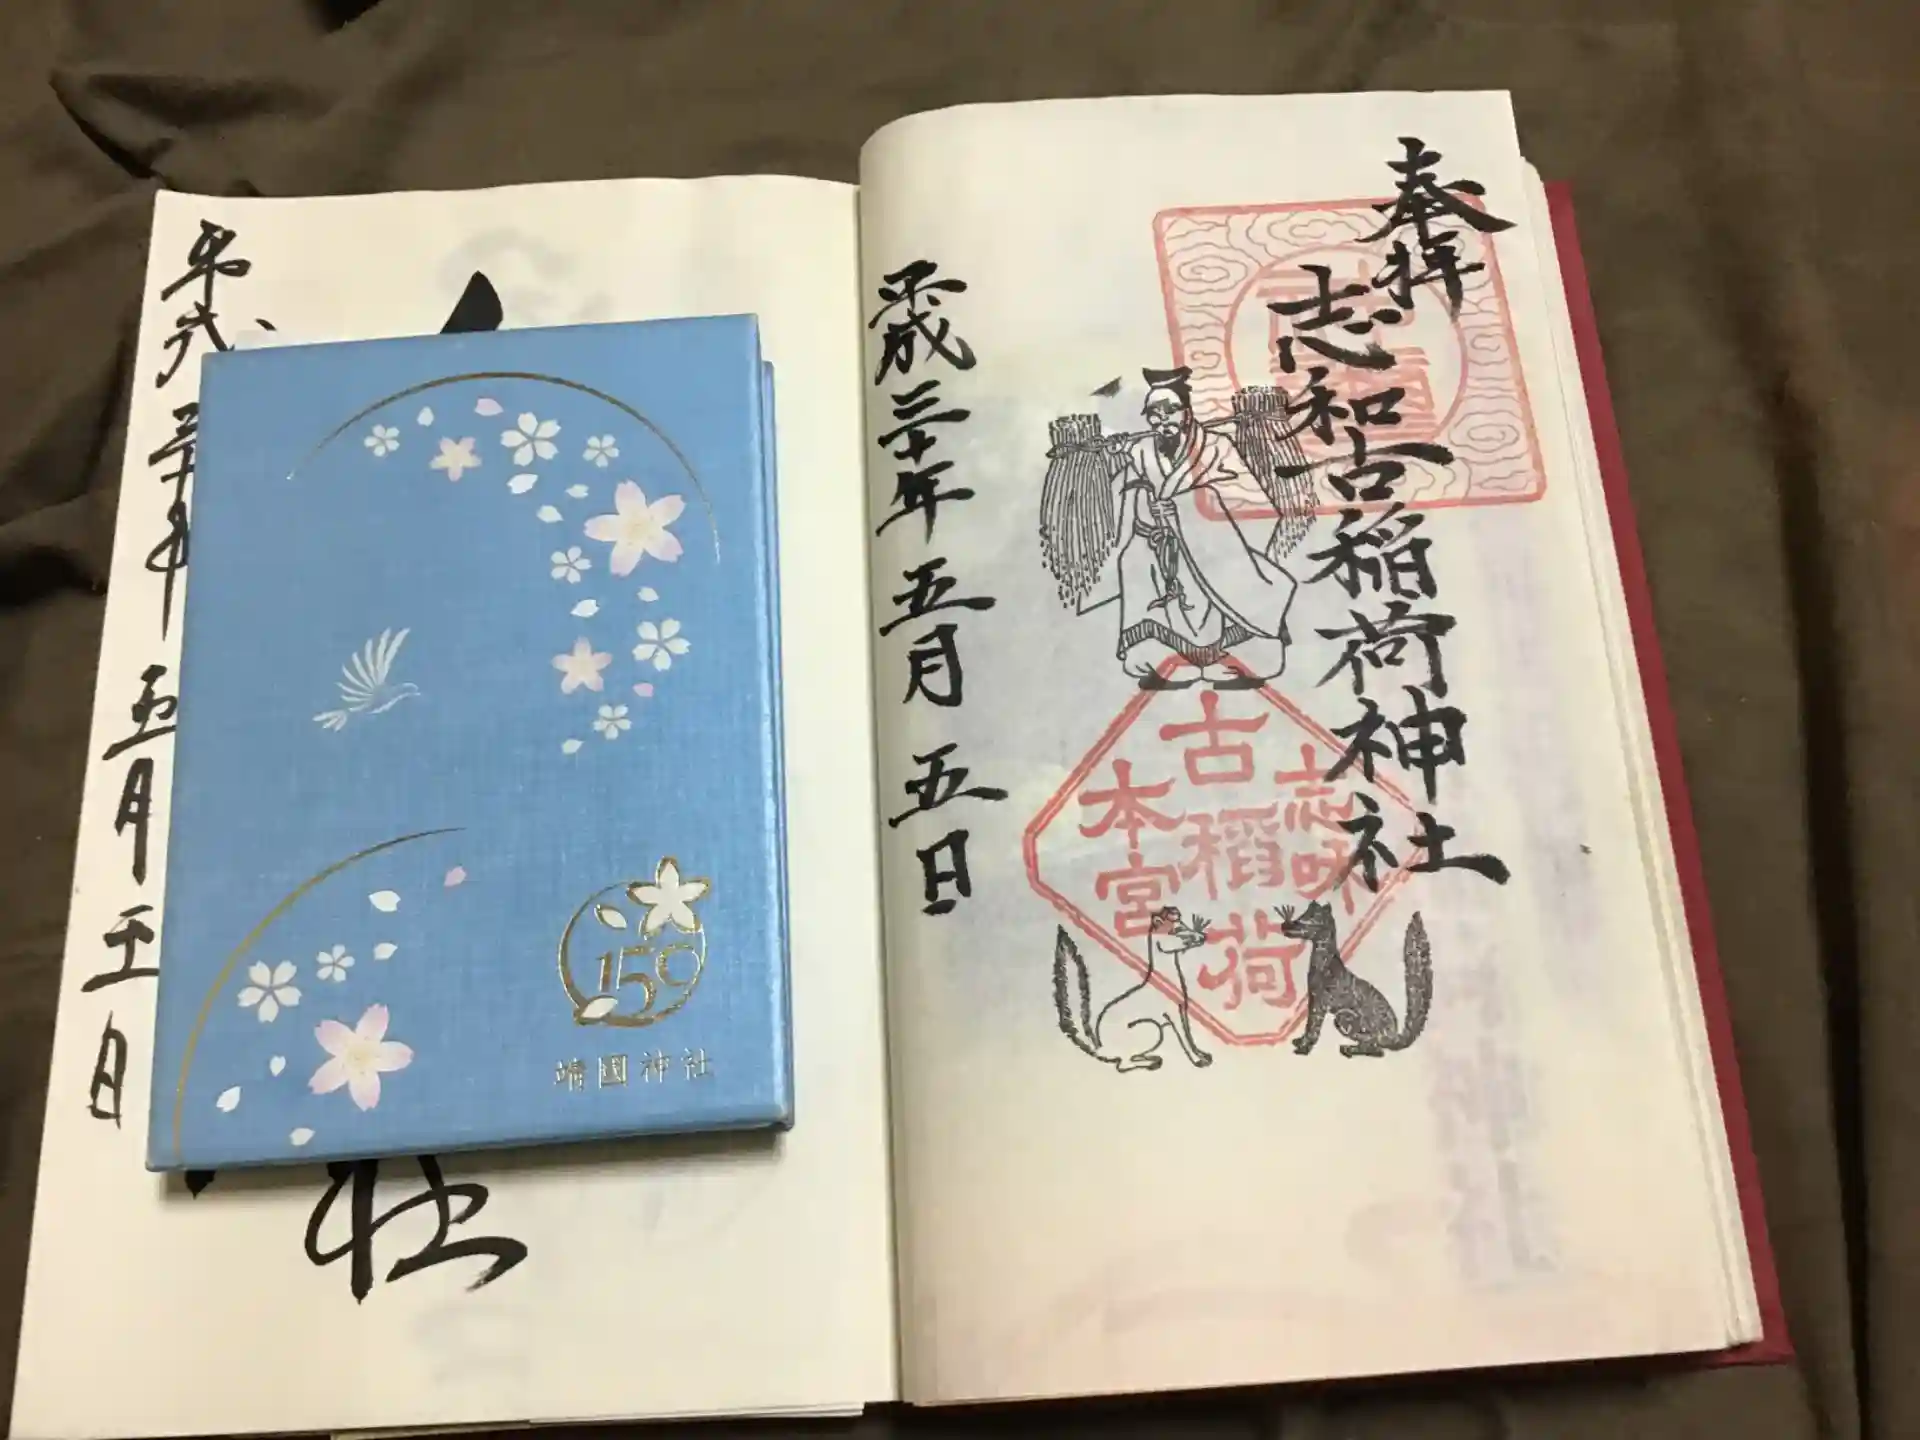 奉拝
志和古稲荷神社
平成三十年 五月 五日
志味
古稻荷
本宮
150
靖國神社
平成三十年 五月五日
社